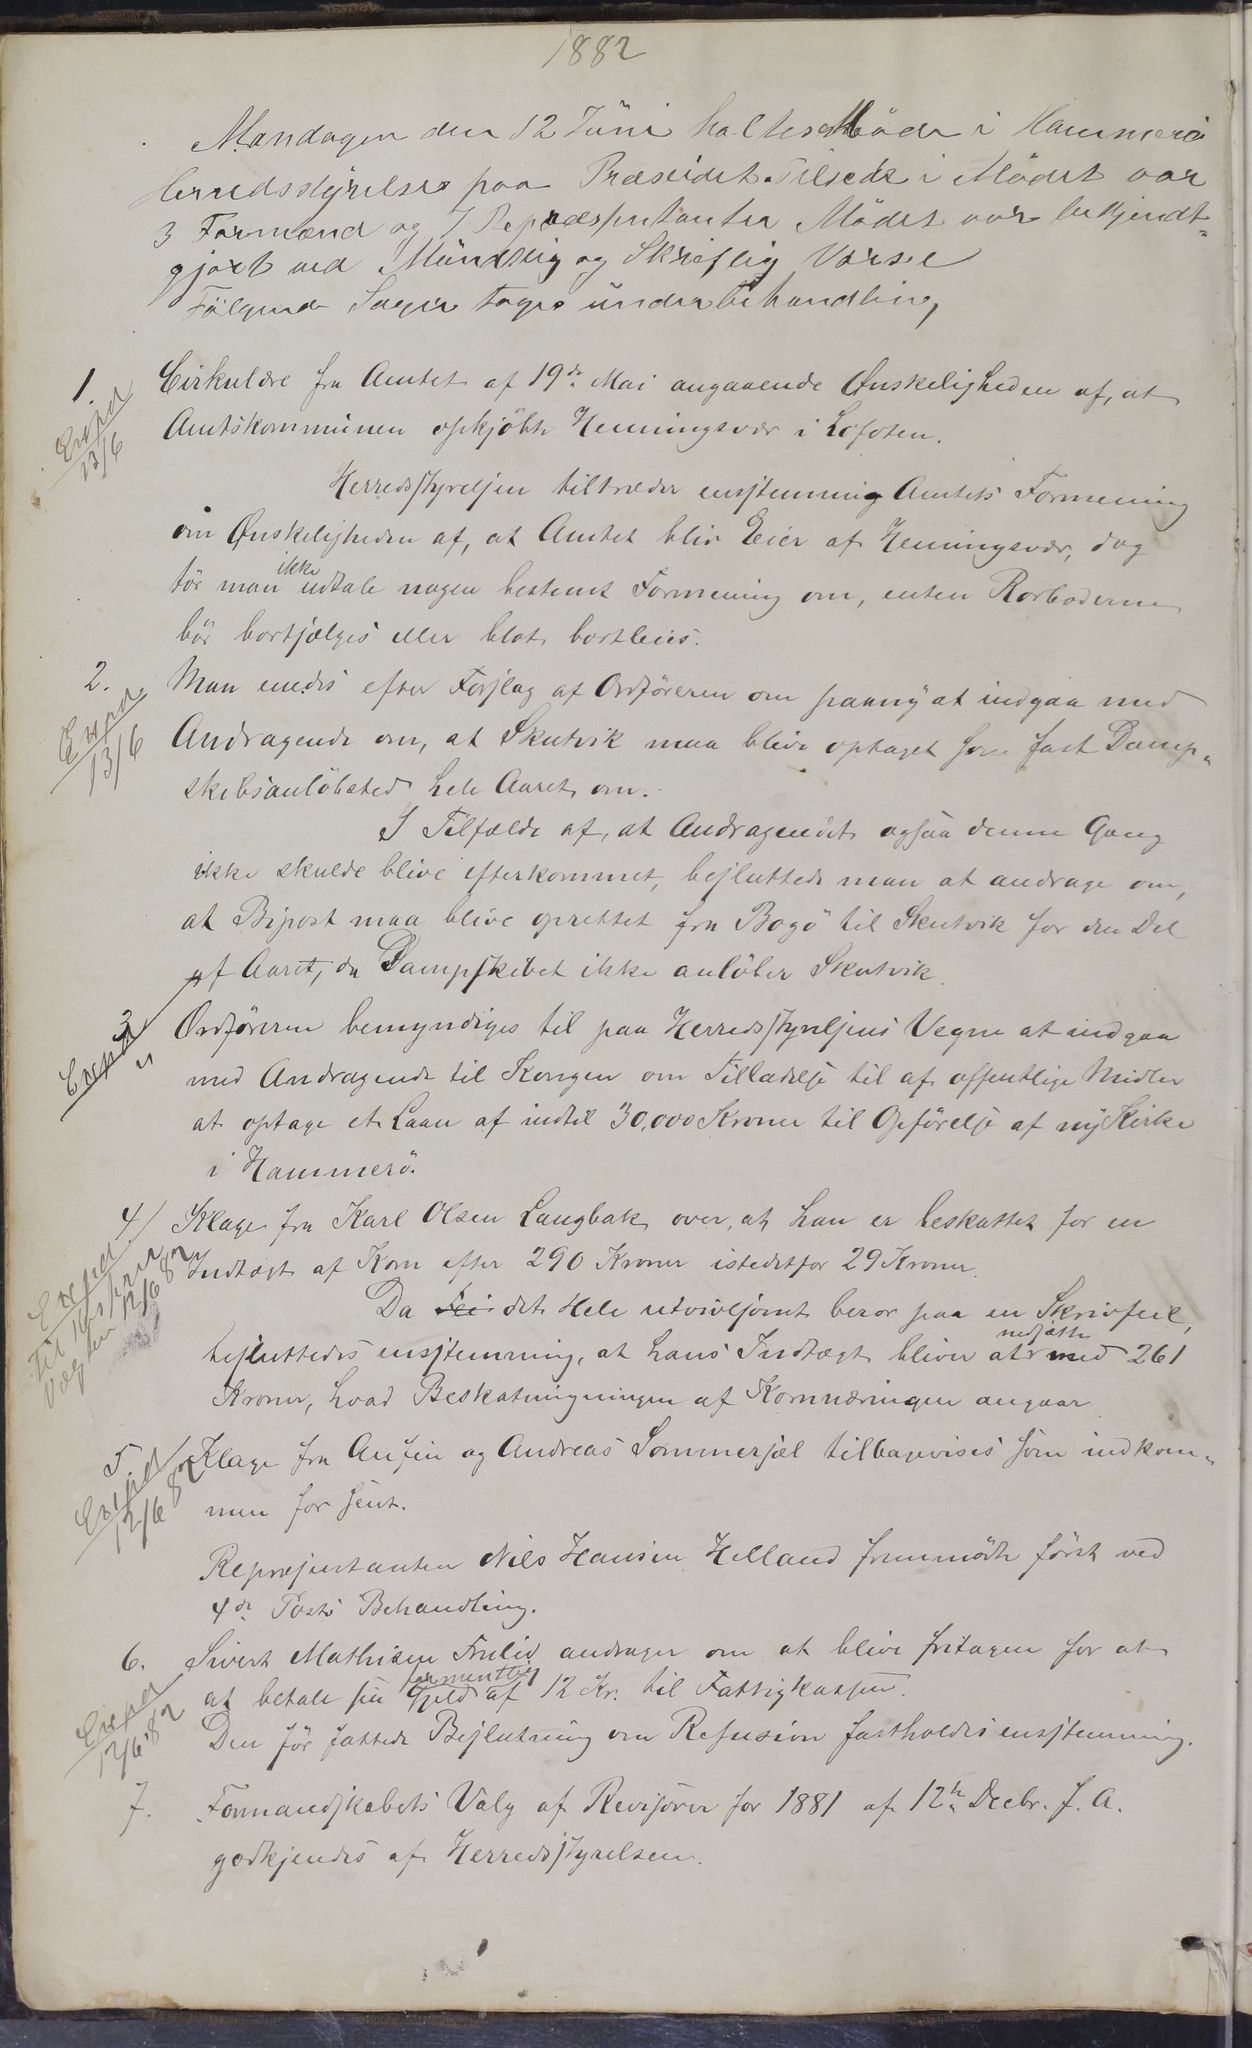 1882
Mandagen den 12 Jüni holtes Möde i Hammerö
Herredsstyrelse paa Præseidet. Tilsede i Mödet var
3 Formænd og 7 Repræsentanter Mödet var bekjendt-
gjort ved Mündtlig og Skriftlig Varsel
Fölgende Sager toges ünder behandling
1. Cirkulære fra Amtet af 19de Mai angaaende Ønskeligheden af, at
Expd
13/6
Amtskommunen opkjöbte Henningsvær i Lofoten.
Herredsstyrelsen tiltræder enstemmig Amtets Formening
om Ønskeligheden af, at Amtet blir Eier af Henningsvær, dog
tör man ikke udtale nogen bestemt Formening om, enten Rorboderne
bör bortsælges eller blot bortleies.
2. Man enedes efter Forslag af Ordföreren om paany at indgaa med
Expd
13/6
Andragende om, at Skutvik maa blive optaget som fast Damp-
skibsanlöbsted hele Aaret om.
I Tilfælde af, at Andragendet ogsaa denne Gang
ikke skulde blive efterkommet, besluttede man at andrage om,
at Bipost maa blive oprettet fra Bogö til Skutvik for den Del
af Aaret, da Dampskibet ikke anlöber Skutvik.
3 Ordföreren bemyndiges til paa Herredsstyrelsens Vegne at indgaa
Expd
"
med Andragende til Kongen om Tilladelse til af offentlige Midler
at optage et Laan af indtil 30,000 Kroner til Opförelse af ny Kirke
i Hammerö.
4/ Klage fra Karl Olsen Langbak over, at han er beskattet for en
Expd
til Kasserer
12/6 82
Indtægt af Korn efter 290 Kroner istedetfor 29 Kroner.
Da Fei det Hele utvivlsomt beror paa en Skrivfeil,
besluttedes enstemmig, at hans Indtægt bliver at nedsætte med 261
Kroner, hvad Beskatningningen af Kornnæringen angaar
5. Klage fra Anfin og Andreas Sommersæl tilbagevises som indkom-
Expd
12/6 82
men for sent.
Repræsentanten Nils Hansen Helland fremmödte först ved
4de Posts Behandling.
6. Sivert Mathisen Trulid andrager om at blive fritagen for at
Expd
12/6 82
at betale sin formentlig Gjeld af 12 Kr. til Fattigkassen.
Den för fattede Beslutning om Refusion fastholdes enstemmig.
7. Formandskabets Valg af Revisorer for 1881 af 12te Decbr. f. A.
godkjendes af Herredsstyrelsen.